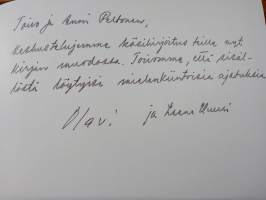 Toivo ja Anni Peltonen,
Keskustelujemme käsikirjoitus tulla nyt
kirjan muodossa. Toivomme, että sisäl-
löstä löytyisi mielenkiintoisia ajatuksia
Olavi ja